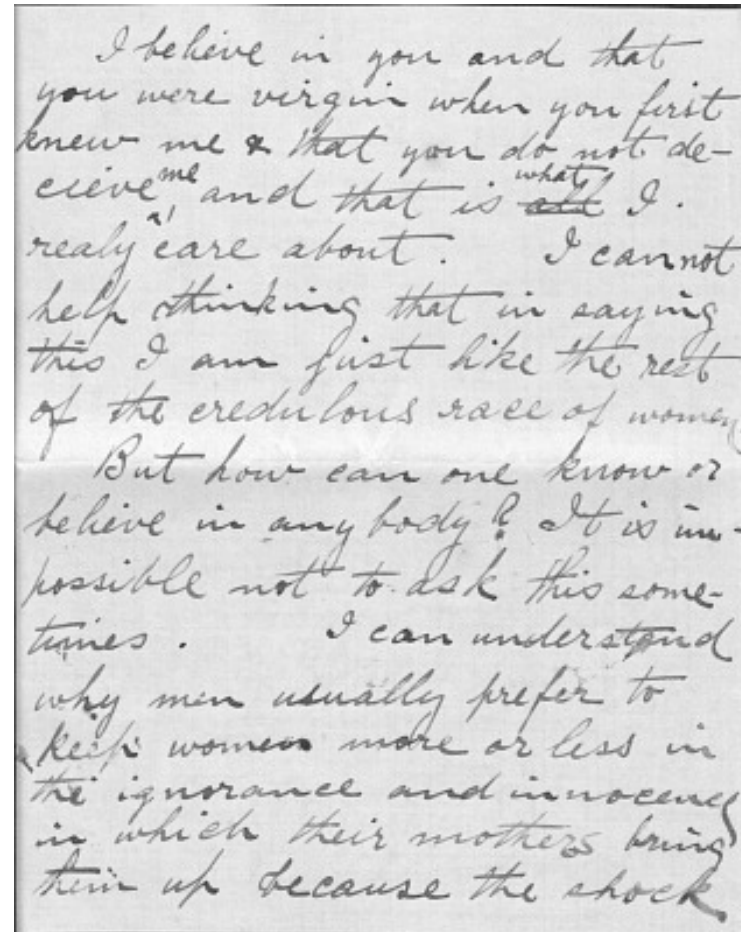 I believe in you and that
you were virgin when you first
knew me & that you do not de-
cieve me, and that is what all I.
realy care about. I cannot
help thinking that in saying
this I am just like the rest
of the credulous race of women
But how can one know or
believe in any body? It is im-
possible not to ask this some-
times. I can understand
why men usually prefer to
keep women more or less in
the ignorance and innocence
in which their mothers bring
them up because the shock